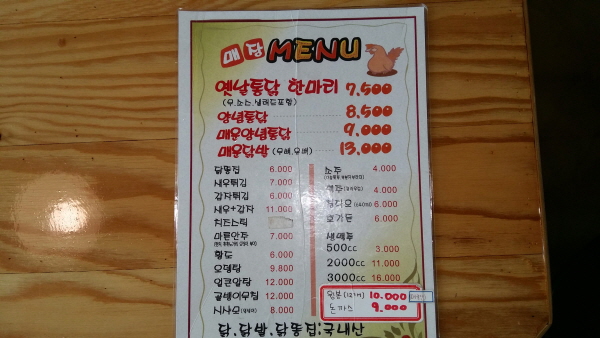 매장 MENU
옛날통닭 한마리 7,500
(무,소스,샐러드포함)
양념통닭 8,500
매운양념통닭 9,000
매운닭발 (무뼈,유뼈) 13,000
닭똥집 6.000
새우튀김 7.000
감자튀김 6.000
새우+감자 11.000
치즈스틱
마른안주 7.000
황도 6.000
오뎅탕 9.800
얼큰알탕 12.000
골뱅이무침 12.000
시사모 8.000
소주 4.000
4.000
6.000
호가든 6.000
생맥주
500cc 3.000
2000cc 11.000
3000cc 16.000
윙봉 10.000
돈까스 9.000
닭,닭발,닭똥집:국내산